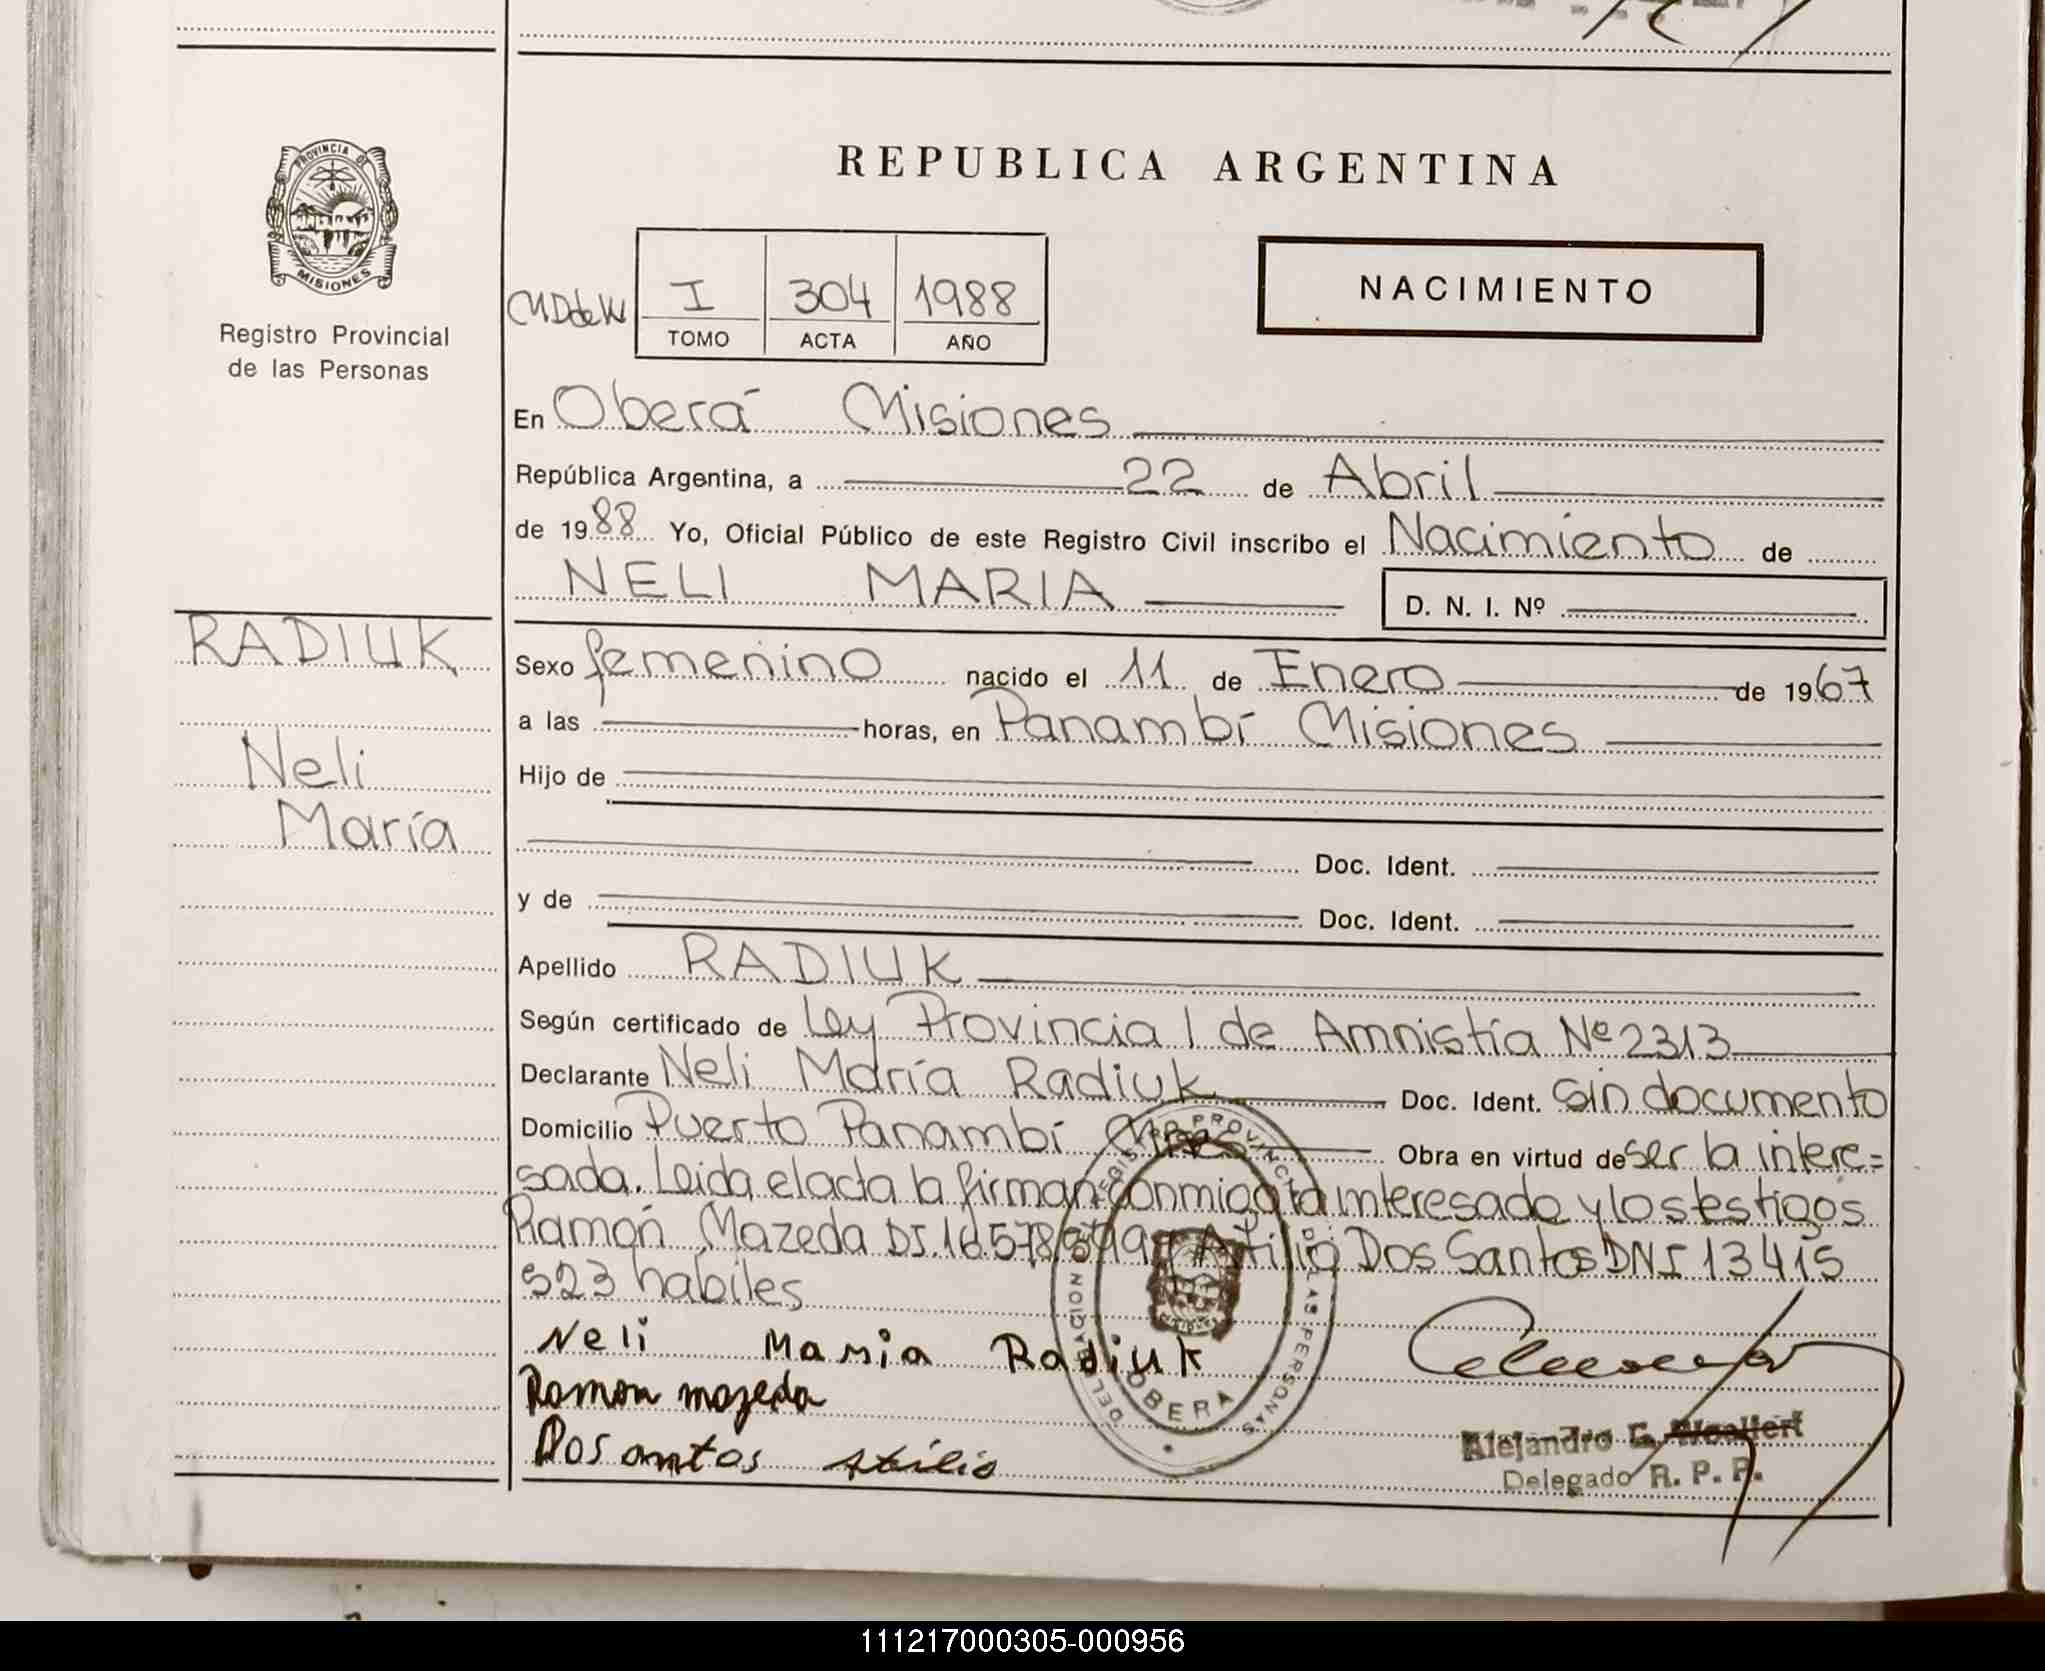 PROVINCIA DE
MISIONES
Registro Provincial
de las Personas
REPUBLICA ARGENTINA
I 304 1988
TOMO ACTA AÑO
NACIMIENTO
En Oberá Misiones
República Argentina, a 22 de Abril
de 1988 Yo, Oficial Público de este Registro Civil inscribo el Nacimiento de
NELI MARIA D. N. I. Nº
RADIUK
Neli
María
Sexo femenino nacido el 11 de Enero de 1967
a las horas, en Panambí Misiones
Hijo de
Doc. Ident.
y de
Doc. Ident.
Apellido RADIUK
Según certificado de Ley Provincial de Amnistía Nº 2313
Declarante Neli María Radiuk Doc. Ident. Sin documento
Domicilio Puerto Panambí Obra en virtud de ser la intere=
sada. Leida el acta la firman conmigo la interesada y los testigos
Ramón Mazeda DI. Atilio Dos Santos DNI 13415
523 habiles
Neli Maria Radiuk
Ramon mazeda
Dos antos atilio
DELEGACION REGISTRO PROVINCIAL DE LAS PERSONAS
OBERA
Alejandro
Delegado R. P. P.
111217000305-000956